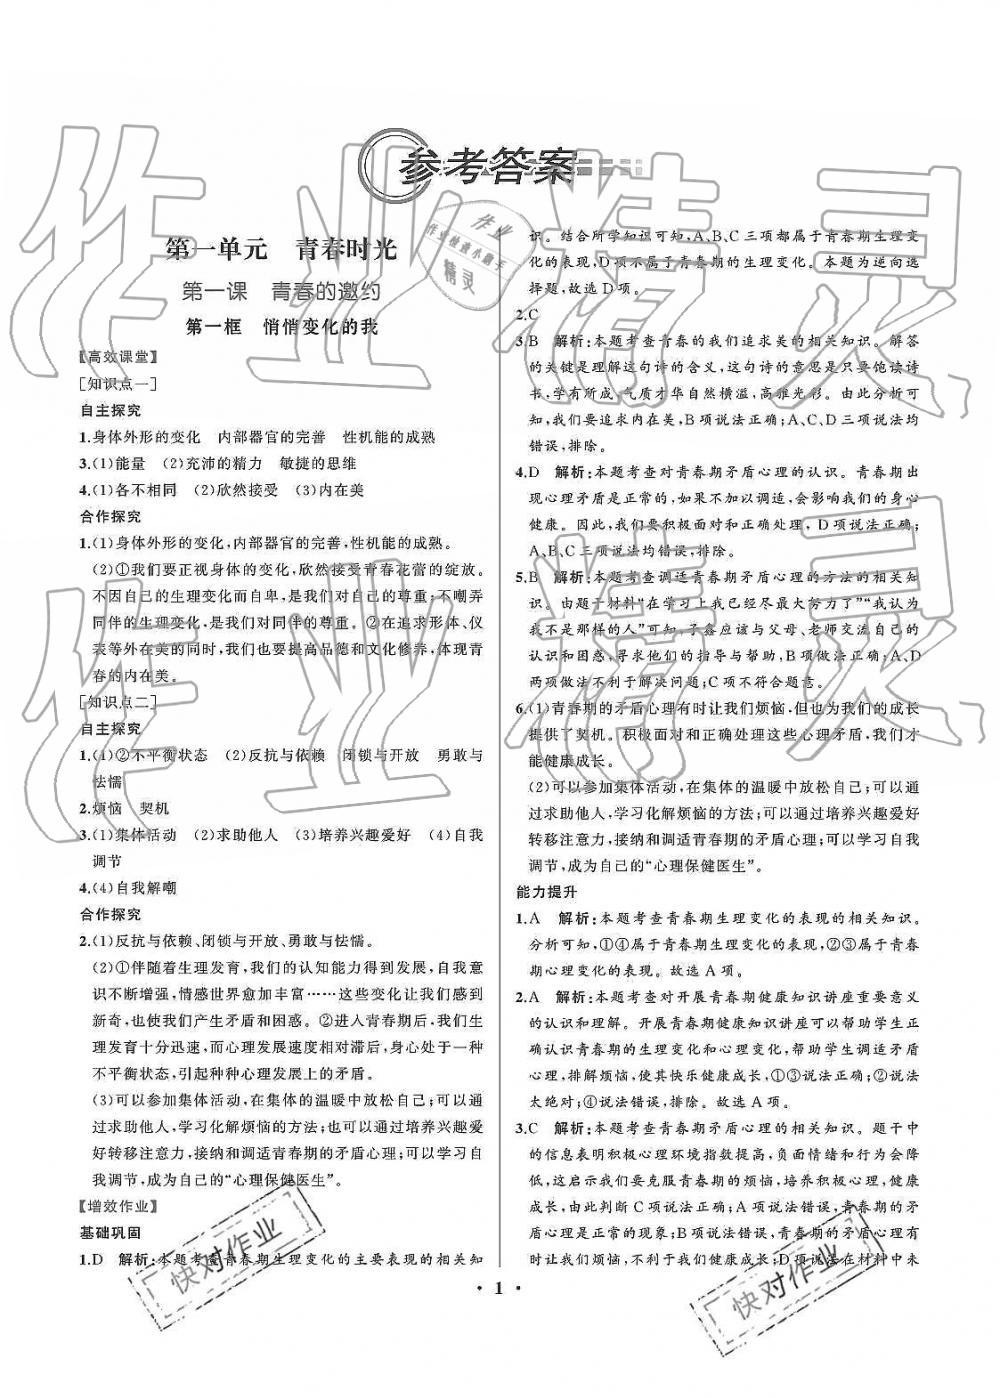 参考答案
第一单元　青春时光
第一课　青春的邀约
第一框　悄悄变化的我
【高效课堂】
[知识点一]
自主探究
1.身体外形的变化　内部器官的完善　性机能的成熟
3.(1)能量　(2)充沛的精力　敏捷的思维
4.(1)各不相同　(2)欣然接受　(3)内在美
合作探究
1.(1)身体外形的变化,内部器官的完善,性机能的成熟。
(2)①我们要正视身体的变化,欣然接受青春花蕾的绽放。
不因自己的生理变化而自卑,是我们对自己的尊重;不嘲弄
同伴的生理变化,是我们对同伴的尊重。②在追求形体、仪
表等外在美的同时,我们也要提高品德和文化修养,体现青
春的内在美。
[知识点二]
自主探究
1.(1)②不平衡状态　(2)反抗与依赖　闭锁与开放　勇敢与
怯懦
2.烦恼　契机
3.(1)集体活动　(2)求助他人　(3)培养兴趣爱好　(4)自我
调节
4.(4)自我解嘲
合作探究
2.(1)反抗与依赖、闭锁与开放、勇敢与怯懦。
(2)①伴随着生理发育,我们的认知能力得到发展,自我意
识不断增强,情感世界愈加丰富……这些变化让我们感到
新奇,也使我们产生矛盾和困惑。②进入青春期后,我们生
理发育十分迅速,而心理发展速度相对滞后,身心处于一种
不平衡状态,引起种种心理发展上的矛盾。
(3)可以参加集体活动,在集体的温暖中放松自己;可以通
过求助他人,学习化解烦恼的方法;可以通过培养兴趣爱
好转移注意力,接纳和调适青春期的矛盾心理;可以学习自
我调节,成为自己的“心理保健医生”。
【增效作业】
基础巩固
1.D　解析:本题考查青春期生理变化的主要表现的相关知
识。结合所学知识可知,A、B、C三项都属于青春期生理变
化的表现,D项不属于青春期的生理变化。本题为逆向选
择题,故选D项。
2.C
3.B　解析:本题考查青春的我们追求美的相关知识。解答
的关键是理解这句诗的含义,这句诗的意思是只要饱读诗
书,学有所成,气质才华自然横溢,高雅光彩。由此分析可
知,我们要追求内在美,B项说法正确;A、C、D三项说法均
错误,排除。
4.D　解析:本题考查对青春期矛盾心理的认识。青春期出
现心理矛盾是正常的,如果不加以调适,会影响我们的身心
健康。因此,我们要积极面对和正确处理,D项说法正确;
A、B、C三项说法均错误,排除。
5.B　解析:本题考查调适青春期矛盾心理的方法的相关知
识。由题干材料“在学习上我已经尽最大努力了”“我认为
我不是那样的人”可知,子鑫应该与父母、老师交流自己的
认识和困惑,寻求他们的指导与帮助,B项做法正确;A、D
两项做法不利于解决问题;C项不符合题意。
6.(1)青春期的矛盾心理有时让我们烦恼,但也为我们的成长
提供了契机。积极面对和正确处理这些心理矛盾,我们才
能健康成长。
(2)可以参加集体活动,在集体的温暖中放松自己;可以通
过求助他人,学习化解烦恼的方法;可以通过培养兴趣爱好
转移注意力,接纳和调适青春期的矛盾心理;可以学习自我
调节,成为自己的“心理保健医生”。
能力提升
1.A　解析:本题考查青春期生理变化的表现的相关知识。
分析可知,①④属于青春期生理变化的表现,②③属于青春
期心理变化的表现。故选A项。
2.A　解析:本题考查对开展青春期健康知识讲座重要意义
的认识和理解。开展青春期健康知识讲座可以帮助学生正
确认识青春期的生理变化和心理变化,帮助学生调适矛盾
心理,排解烦恼,使其快乐健康成长,①③说法正确;②说法
太绝对;④说法错误,排除。故选A项。
3.C　解析:本题考查青春期矛盾心理的相关知识。题干中
的信息表明积极心理环境指数提高,负面情绪和行为会降
低,这启示我们要克服青春期的烦恼,培养积极心理,健康
成长,由此判断C项说法正确;A项说法错误,青春期的矛
盾心理是正常的现象;B项说法错误,青春期的矛盾心理有
时让我们烦恼,不利于我们健康成长;D项说法在材料中未
· 1 ·
作业精灵
作业
作业检查小助手
精灵
快对作业
快对作业